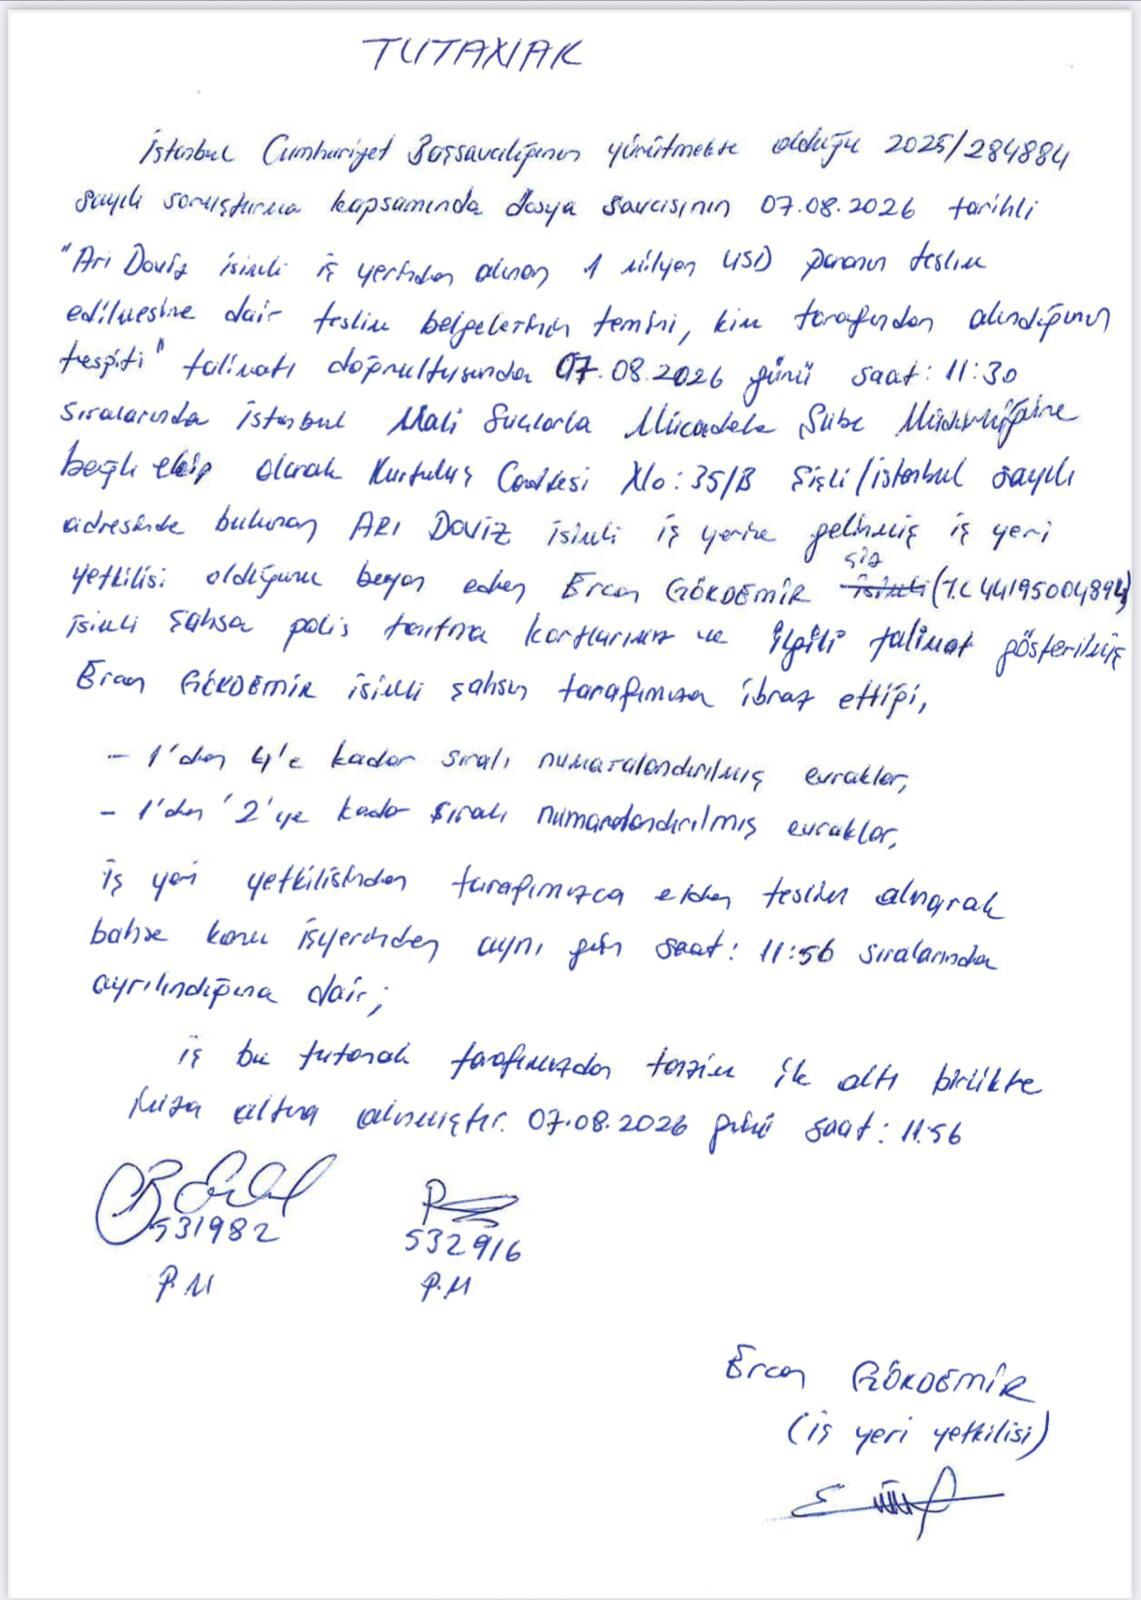 TUTANAK
İstanbul Cumhuriyet Başsavcılığının yürütmekte olduğu 2025/284884
sayılı soruşturma kapsamında dosya savcısının 07.08.2026 tarihli
"Arı Döviz isimli iş yerinden alınan 1 milyon USD paranın teslim
edilmesine dair teslim belgelerinin temini, kim tarafından alındığının
tespiti" talimatı doğrultusunda 07.08.2026 günü saat: 11:30
sıralarında İstanbul Mali Suçlarla Mücadele Şube Müdürlüğüne
bağlı ekip olarak Kurtuluş Caddesi No: 35/B Şişli/İstanbul sayılı
adresinde bulunan ARI DÖVİZ isimli iş yerine gelinmiş iş yeri
yetkilisi olduğunu beyan eden Ercan GÖKDEMİR isimli (T.C 44195004894)
isimli şahsa polis tanıtma kartlarımız ve ilgili talimat gösterilmiş
Ercan GÖKDEMİR isimli şahsın tarafımıza ibraz ettiği,
- 1'den 4'e kadar sıralı numaralandırılmış evraklar,
- 1'den '2'ye kadar sıralı numaralandırılmış evraklar,
iş yeri yetkilisinden tarafımızca elden teslim alınarak
bahse konu işyerinden aynı gün saat: 11:56 sıralarında
ayrılındığına dair;
iş bu tutanak tarafımızdan tanzim ile altı birlikte
imza altına alınmıştır. 07.08.2026 günü saat: 11:56
531982 532916
P.M P.M
Ercan GÖKDEMİR
(iş yeri yetkilisi)